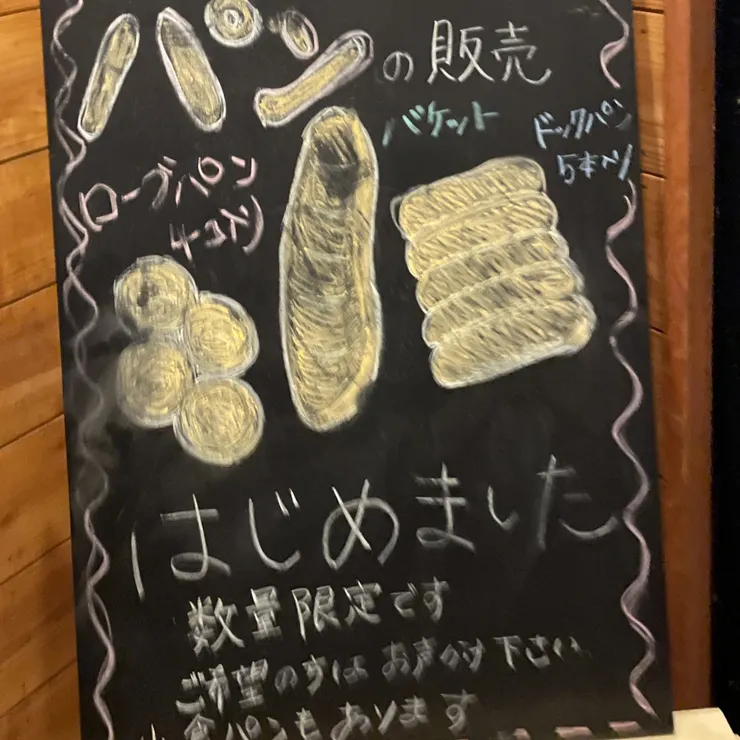 パンの販売
バケット
ドックパン
5本入り
ローブパン
4コ入り
はじめました
数量限定です
ご希望の方は お声かけ下さい
食パンもあります